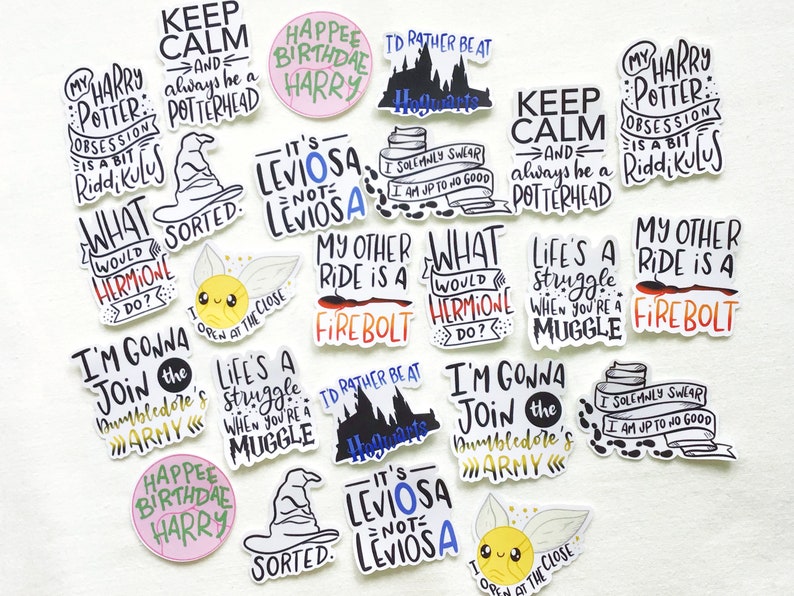 KEEP
CALM
AND
always be a
POTTERHEAD
HAPPEE
BIRTHDAE
HARRY
I'D RATHER BE AT
Hogwarts
MY
HARRY
POTTER
OBSESSION
IS A BIT
RiddiKULUS
MY
HARRY
POTTER
OBSESSION
IS A BIT
RiddiKULUS
KEEP
CALM
AND
always be a
POTTERHEAD
SORTED.
IT'S
LEVIOSA
NOT
LEVIOSA
I SOLEMNLY SWEAR
I AM UP TO NO GOOD
WHAT
WOULD
HERMIONE
DO?
I OPEN AT THE CLOSE
MY OTHER
RiDE iS A
FiREBOLT
WHAT
WOULD
HERMIONE
DO?
LiFE'S A
struggle
WHEN YOU'RE A
MUGGLE
MY OTHER
RiDE iS A
FiREBOLT
I'M GONNA
JOIN the
Dumbledore's
ARMY
LiFE'S A
struggle
WHEN YOU'RE A
MUGGLE
I'D RATHER BE AT
Hogwarts
I'M GONNA
JOIN the
Dumbledore's
ARMY
I SOLEMNLY SWEAR
I AM UP TO NO GOOD
HAPPEE
BIRTHDAE
HARRY
SORTED.
IT'S
LEVIOSA
NOT
LEVIOSA
I OPEN AT THE CLOSE